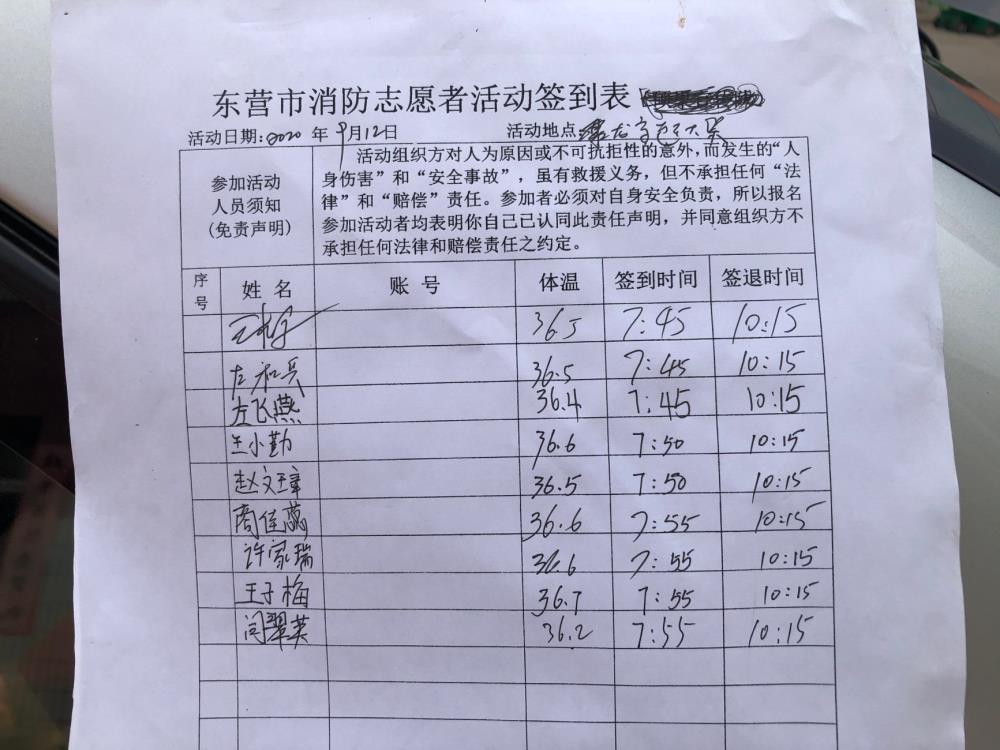 东营市消防志愿者活动签到表
活动日期:2020 年 9月12日 活动地点:
参加活动
人员须知
(免责声明)
活动组织方对人为原因或不可抗拒性的意外,而发生的“人
身伤害”和“安全事故”,虽有救援义务,但不承担任何“法
律”和“赔偿”责任。参加者必须对自身安全负责,所以报名
参加活动者均表明你自己已认同此责任声明,并同意组织方不
承担任何法律和赔偿责任之约定。
序号 姓 名 账 号 体温 签到时间 签退时间
36.5 7:45 10:15
左和兵 36.5 7:45 10:15
左飞燕 36.4 7:45 10:15
王小勤 36.6 7:50 10:15
赵文璋 36.5 7:50 10:15
周佳蕊 36.6 7:55 10:15
许家瑞 36.6 7:55 10:15
王子梅 36.7 7:55 10:15
闫翠英 36.2 7:55 10:15